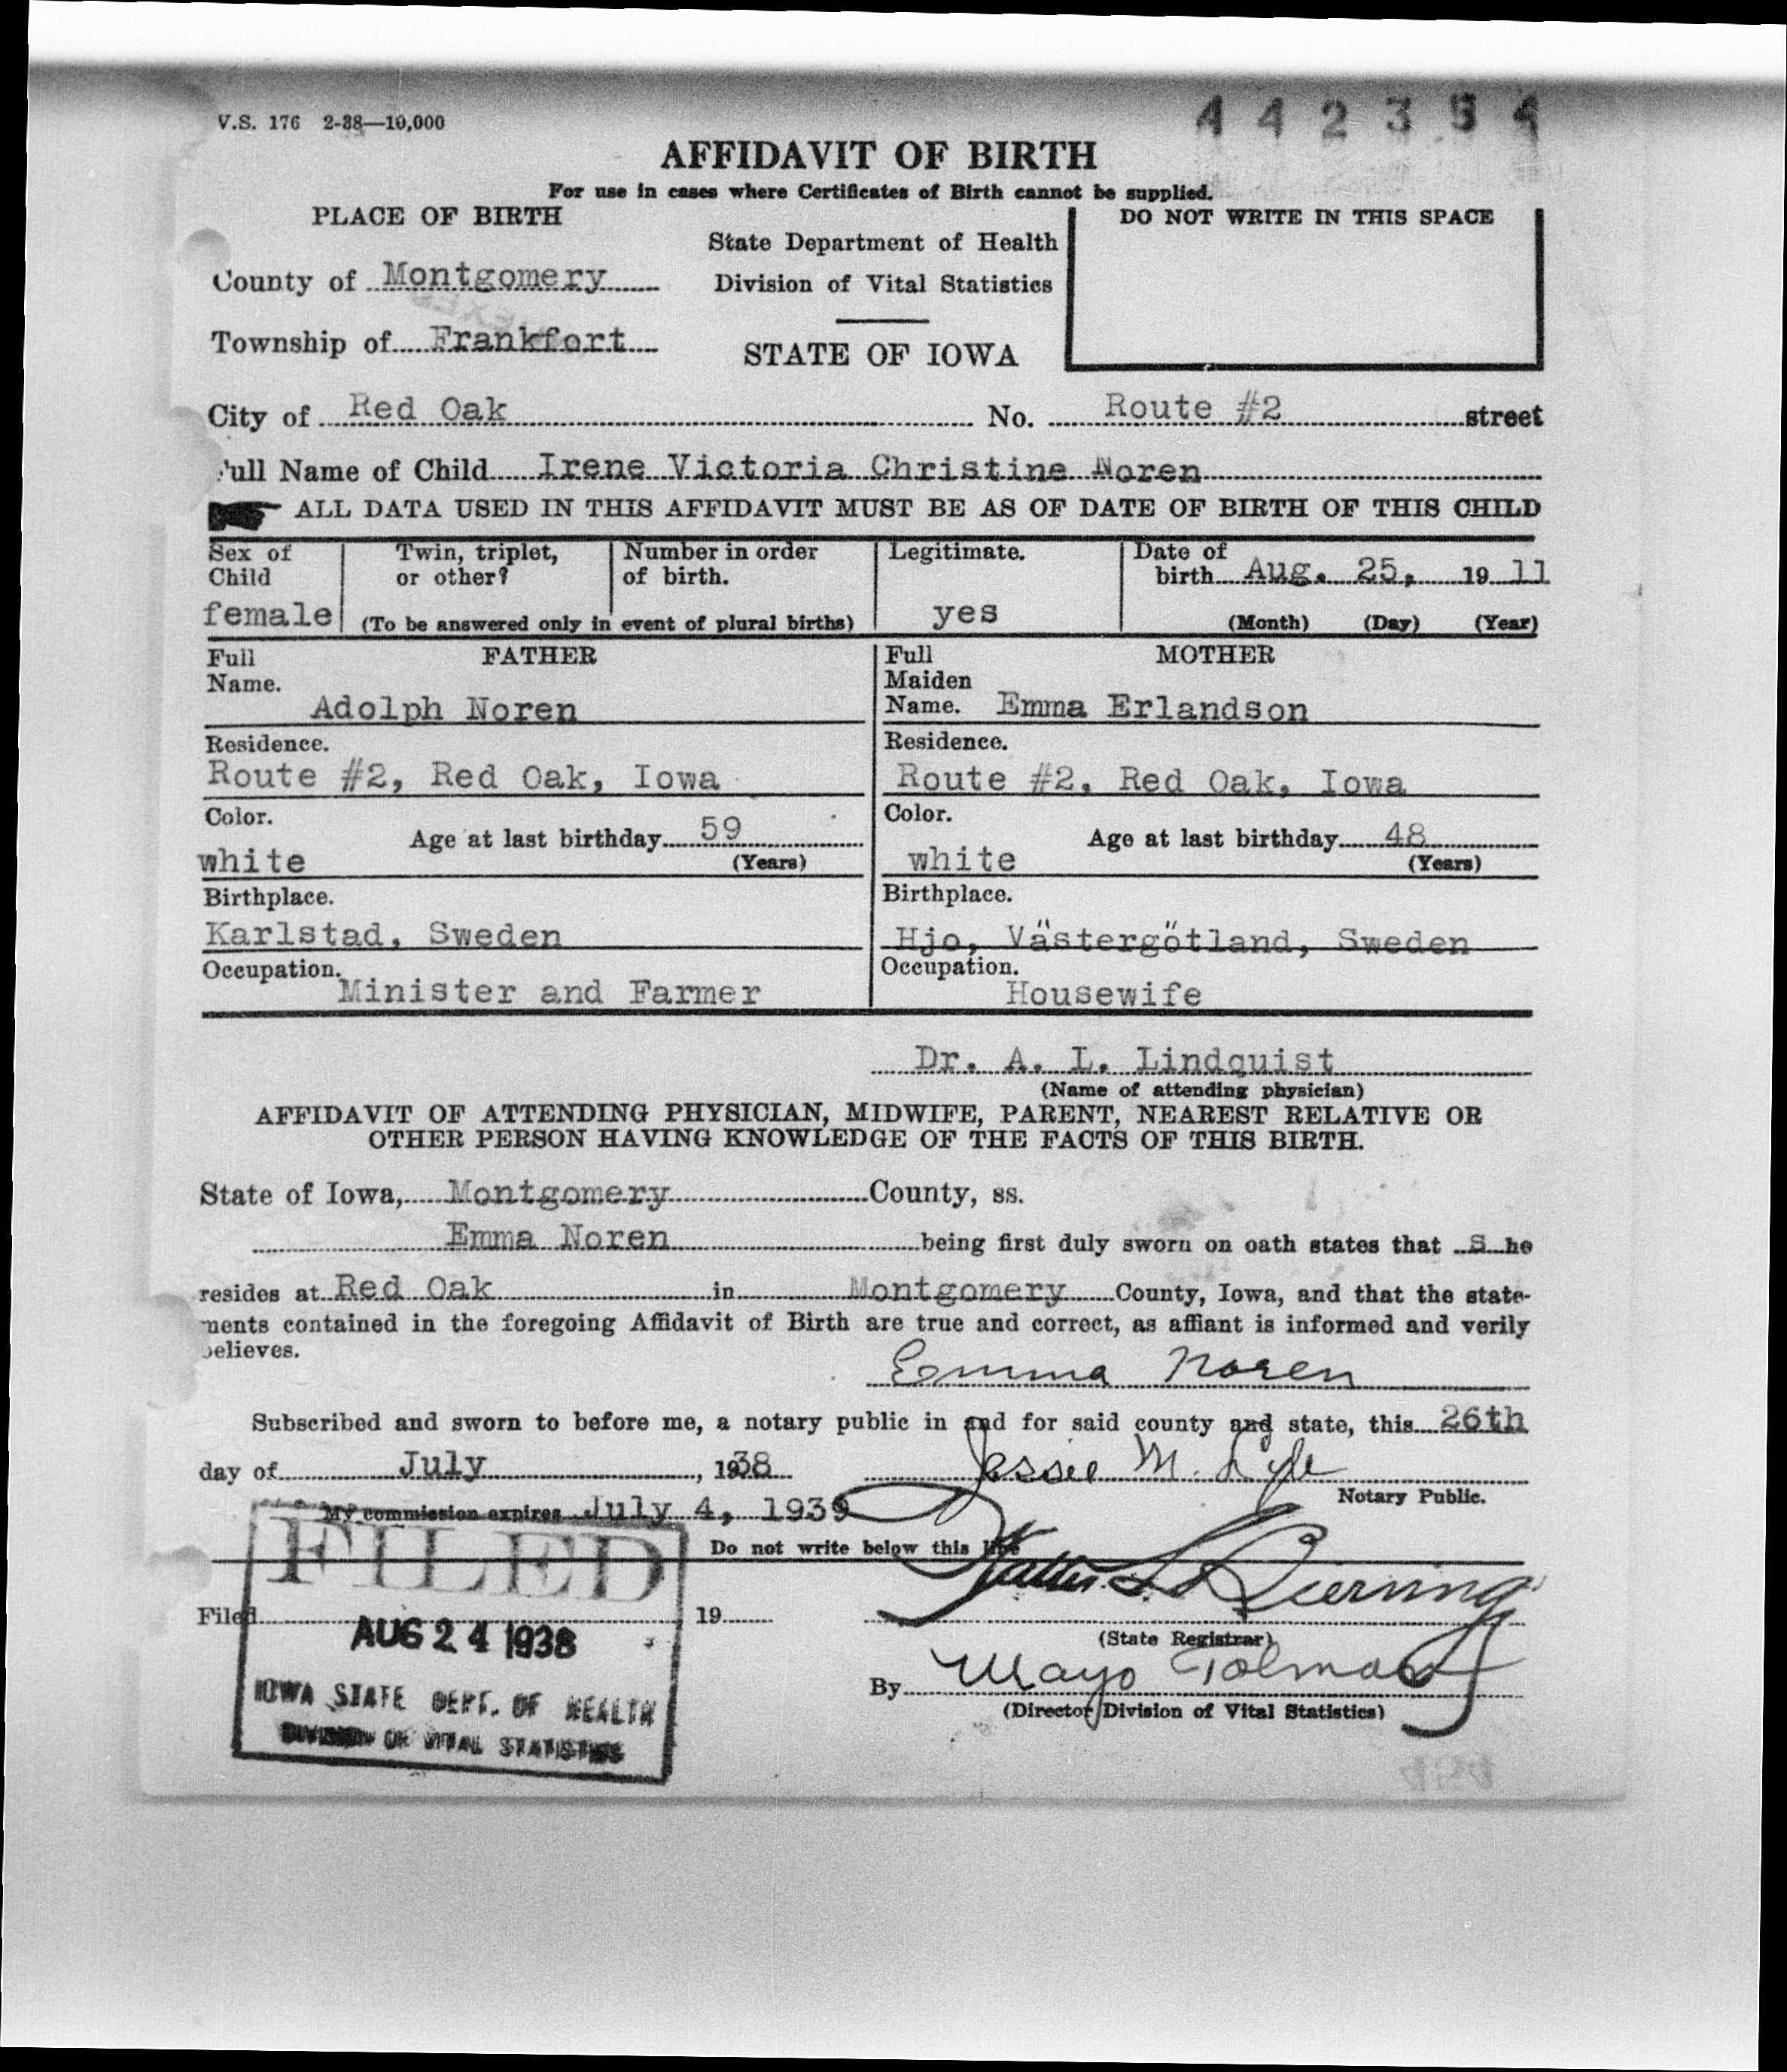 V.S. 176 2-38—10,000
4 4 2 3 5 4
AFFIDAVIT OF BIRTH
For use in cases where Certificates of Birth cannot be supplied.
PLACE OF BIRTH
DO NOT WRITE IN THIS SPACE
State Department of Health
County of Montgomery
Division of Vital Statistics
Township of Frankfort
STATE OF IOWA
City of Red Oak No. Route #2 street
Full Name of Child Irene Victoria Christine Noren
ALL DATA USED IN THIS AFFIDAVIT MUST BE AS OF DATE OF BIRTH OF THIS CHILD
Sex of Child female
Twin, triplet, or other?
Number in order of birth.
(To be answered only in event of plural births)
Legitimate. yes
Date of birth Aug. 25, 19 11
(Month) (Day) (Year)
FATHER
Full Name.
Adolph Noren
Residence.
Route #2, Red Oak, Iowa
Color.
white
Age at last birthday 59
(Years)
Birthplace.
Karlstad, Sweden
Occupation.
Minister and Farmer
MOTHER
Full Maiden Name. Emma Erlandson
Residence.
Route #2, Red Oak, Iowa
Color.
white
Age at last birthday 48
(Years)
Birthplace.
Hjo, Västergötland, Sweden
Occupation.
Housewife
Dr. A. L. Lindquist
(Name of attending physician)
AFFIDAVIT OF ATTENDING PHYSICIAN, MIDWIFE, PARENT, NEAREST RELATIVE OR
OTHER PERSON HAVING KNOWLEDGE OF THE FACTS OF THIS BIRTH.
State of Iowa, Montgomery County, ss.
Emma Noren being first duly sworn on oath states that S he
resides at Red Oak in Montgomery County, Iowa, and that the state-
ments contained in the foregoing Affidavit of Birth are true and correct, as affiant is informed and verily
believes.
Emma Noren
Subscribed and sworn to before me, a notary public in and for said county and state, this 26th
day of July, 1938 Jessie M. Lyle
Notary Public.
My commission expires July 4, 1939
Do not write below this line
FILED
Walter L. Bierring
Filed 19
AUG 24 1938
(State Registrar)
IOWA STATE DEPT. OF HEALTH
DIVISION OF VITAL STATISTICS
By Mayo Tolman
(Director Division of Vital Statistics)